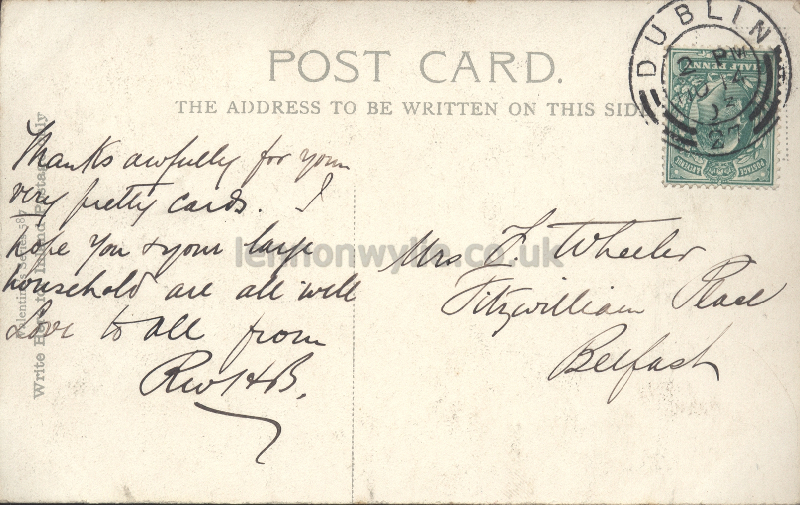 POST CARD.
THE ADDRESS TO BE WRITTEN ON THIS SIDE
DUBLIN
2 PM
HALF PENNY
POSTAGE
Thanks awfully for your
very pretty cards. I
hope you & your large
household are all well
Love to all from
Mrs F. Wheeler
Fitzwilliam Place
Belfast
Valentine's Series 587
Write Here for Inland Postage Only
lennonwylie.co.uk